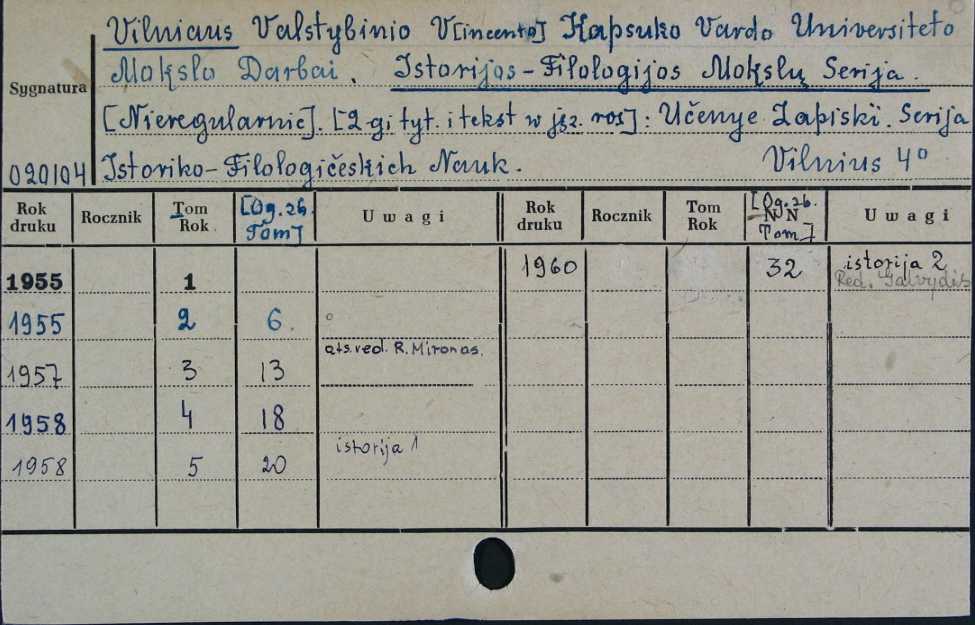 Vilniaus Valstybinio V[incento] Kapsuko Vardo Universiteto
Mokslo Darbai. Istorijos-Filologijos Mokslų Serija.
Sygnatura
[Nieregularnie]. [2-gi tyt. i tekst w jęz. ros]: Učenye Zapiski. Serija
020104 Istoriko-Filologičeskich Nauk. Vilnius 4°
Rok druku Rocznik Tom Rok [Og. zb. Tom] Uwagi Rok druku Rocznik Tom Rok [Og. zb. NN Tom] Uwagi
1955 1 1960 32 istorija 2
Red.
1955 2 6
ats. red. R. Mironas.
1957 3 13
1958 4 18
istorija 1
1958 5 20